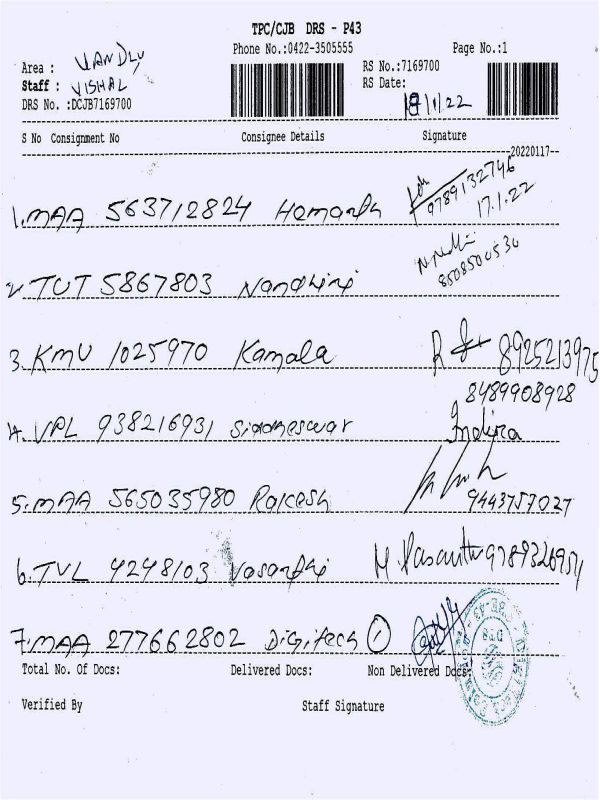 TPC/CJB DRS - P43
Phone No.:0422-3505555 Page No.:1
Area : VANDLY
Staff : VISHAL
DRS No. :DCJB7169700
RS No.:7169700
RS Date: 18/1/22
S No Consignment No Consignee Details Signature
20220117
1. MAA 563712824 Hemanth 9789132746
17.1.22
2. TUT 5867803 Nandhini 8508500530
3. KMU 1025970 Kamala 8925213975
8489908928
4. VPL 938216931 Siddheswar Indira
5. MAA 565035980 Rakesh 9443757027
6. TVL 4248103 Vasanthi M. Vasanthi 9789326951
7. MAA 277662802 Digitech 1
Total No. Of Docs: Delivered Docs: Non Delivered Docs:
Verified By Staff Signature